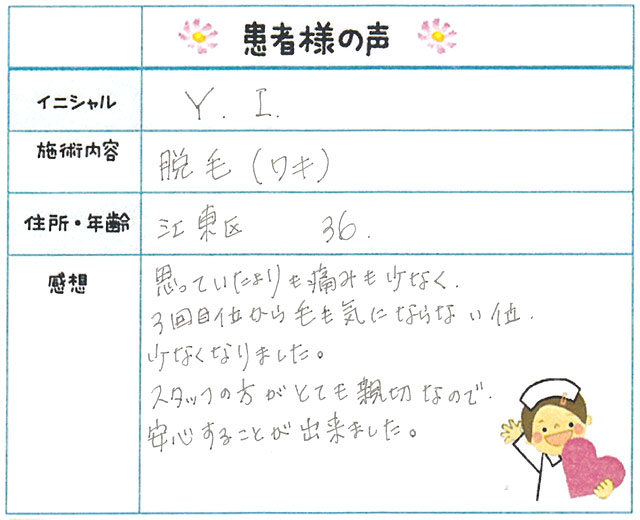 患者様の声
イニシャル Y. I.
施術内容 脱毛(ワキ)
住所・年齢 江東区 36.
感想 思っていたよりも痛みも少なく.
3回目位から毛も気にならない位.
少なくなりました。
スタッフの方がとても親切なので.
安心することが出来ました。